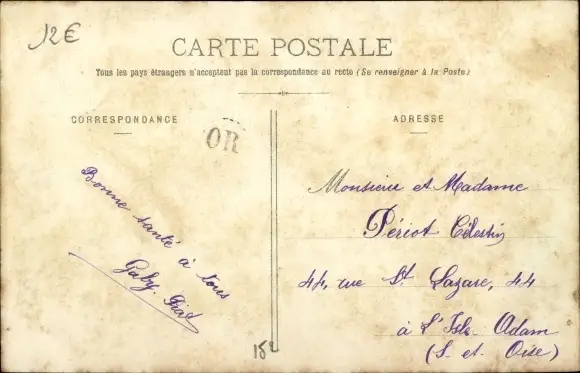 12€
CARTE POSTALE
Tous les pays étrangers n'acceptent pas la correspondance au recto (Se renseigner à la Poste)
CORRESPONDANCE
OR
Bonne santé à tous
Gaby
ADRESSE
Monsieur et Madame
Périot Célestin
44, rue St Lazare, 44
à L'Isle-Adam
(S. et. Oise)
182